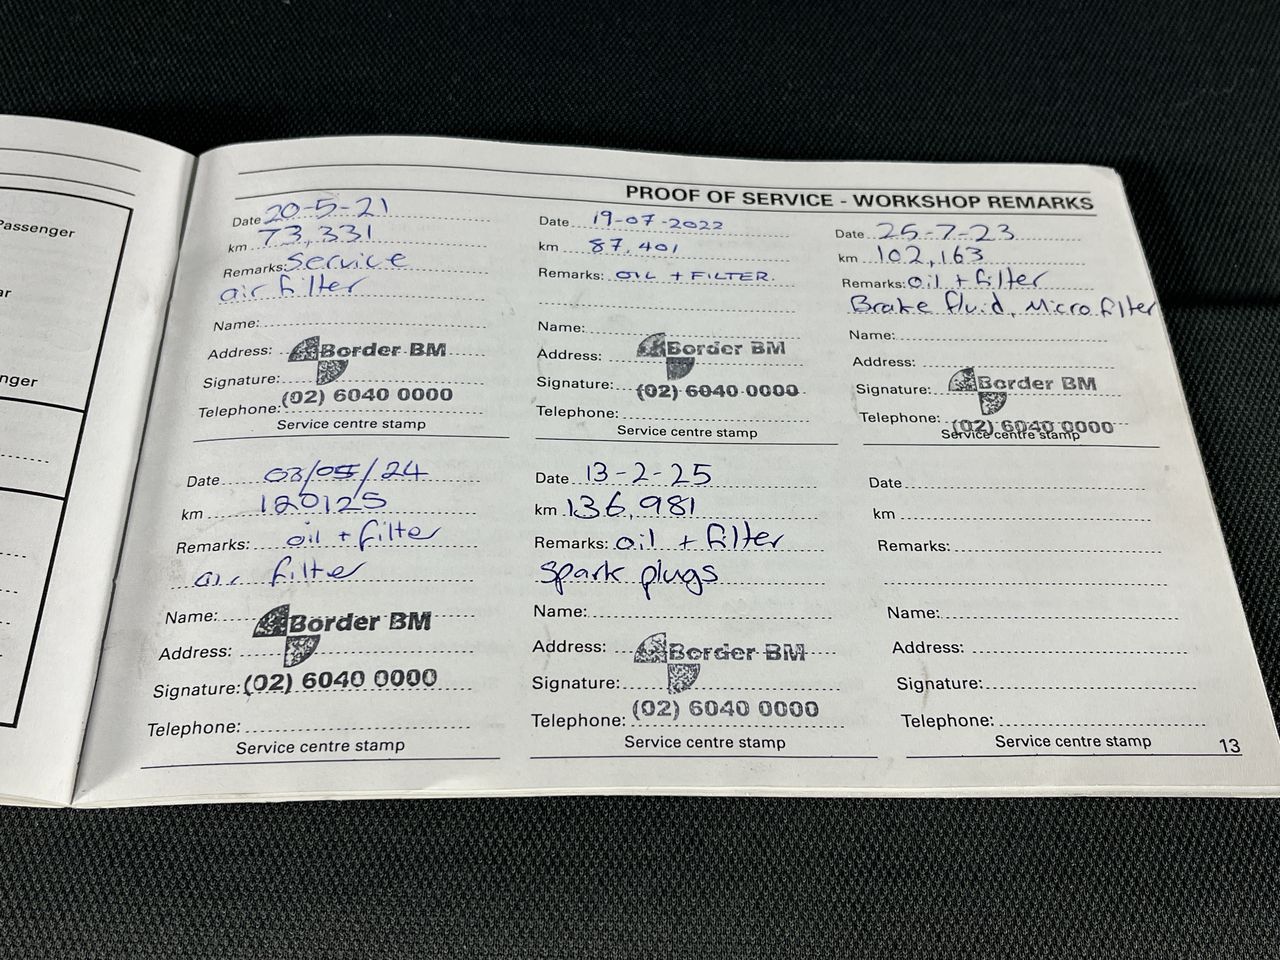 Passenger
ar
nger
PROOF OF SERVICE - WORKSHOP REMARKS
Date 20-5-21
km 73,331
Remarks: Service
air filter
Name:
Address: Border BM
Signature:
Telephone: (02) 6040 0000
Service centre stamp
Date 19-07-2022
km 87,401
Remarks: OIL + FILTER.
Name:
Address: Border BM
Signature: (02) 6040 0000
Telephone:
Service centre stamp
Date 25-7-23
km 102,163
Remarks: oil + filter
Brake fluid, Micro filter
Name:
Address:
Signature: Border BM
Telephone: (02) 6040 0000
Service centre stamp
Date 03/05/24
km 120125
Remarks: oil + filter
air filter
Name: Border BM
Address:
Signature: (02) 6040 0000
Telephone:
Service centre stamp
Date 13-2-25
km 136,981
Remarks: oil + filter
Spark plugs
Name:
Address: Border BM
Signature:
Telephone: (02) 6040 0000
Service centre stamp
Date
km
Remarks:
Name:
Address:
Signature:
Telephone:
Service centre stamp
13